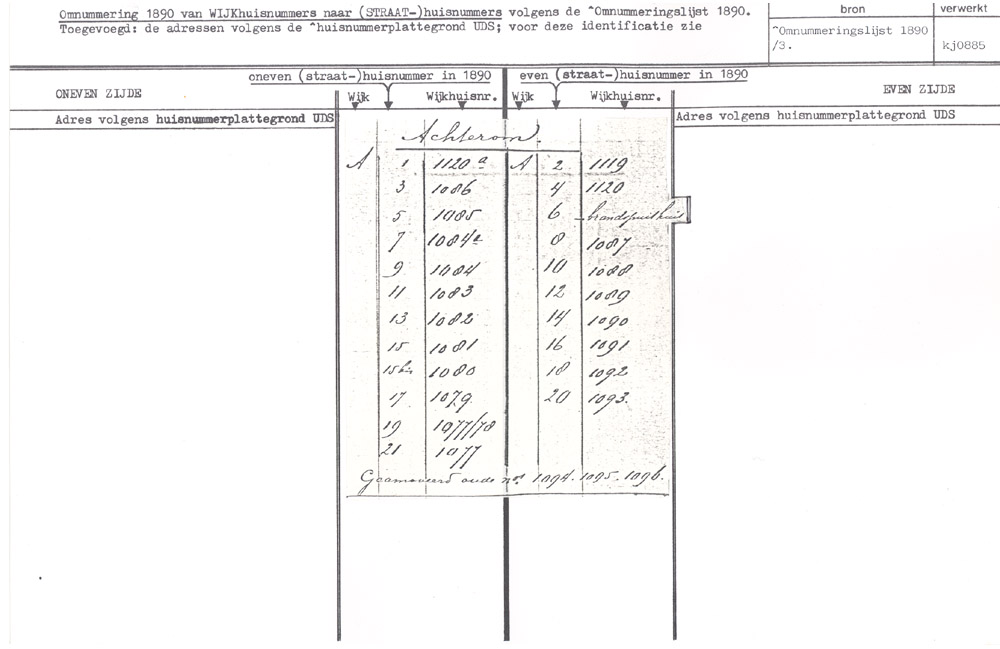 Omnummering 1890 van WIJKhuisnummers naar (STRAAT-)huisnummers volgens de ^Omnummeringslijst 1890.
Toegevoegd: de adressen volgens de ^huisnummerplattegrond UDS; voor deze identificatie zie
bron
verwerkt
^Omnummeringslijst 1890
/3.
kj0885
oneven (straat-)huisnummer in 1890
even (straat-)huisnummer in 1890
ONEVEN ZIJDE
Wijk Wijkhuisnr.
Wijk Wijkhuisnr.
EVEN ZIJDE
Adres volgens huisnummerplattegrond UDS
Adres volgens huisnummerplattegrond UDS
Achterom.
A 1 1120 a A 2 1119
3 1086 4 1120
5 1085 6 brandspuithuis
7 1084a 8 1087
9 1084 10 1088
11 1083 12 1089
13 1082 14 1090
15 1081 16 1091
15bis 1080 18 1092
17 1079 20 1093.
19 1077/78
21 1077
Geamoveerd oude nos 1094. 1095. 1096.